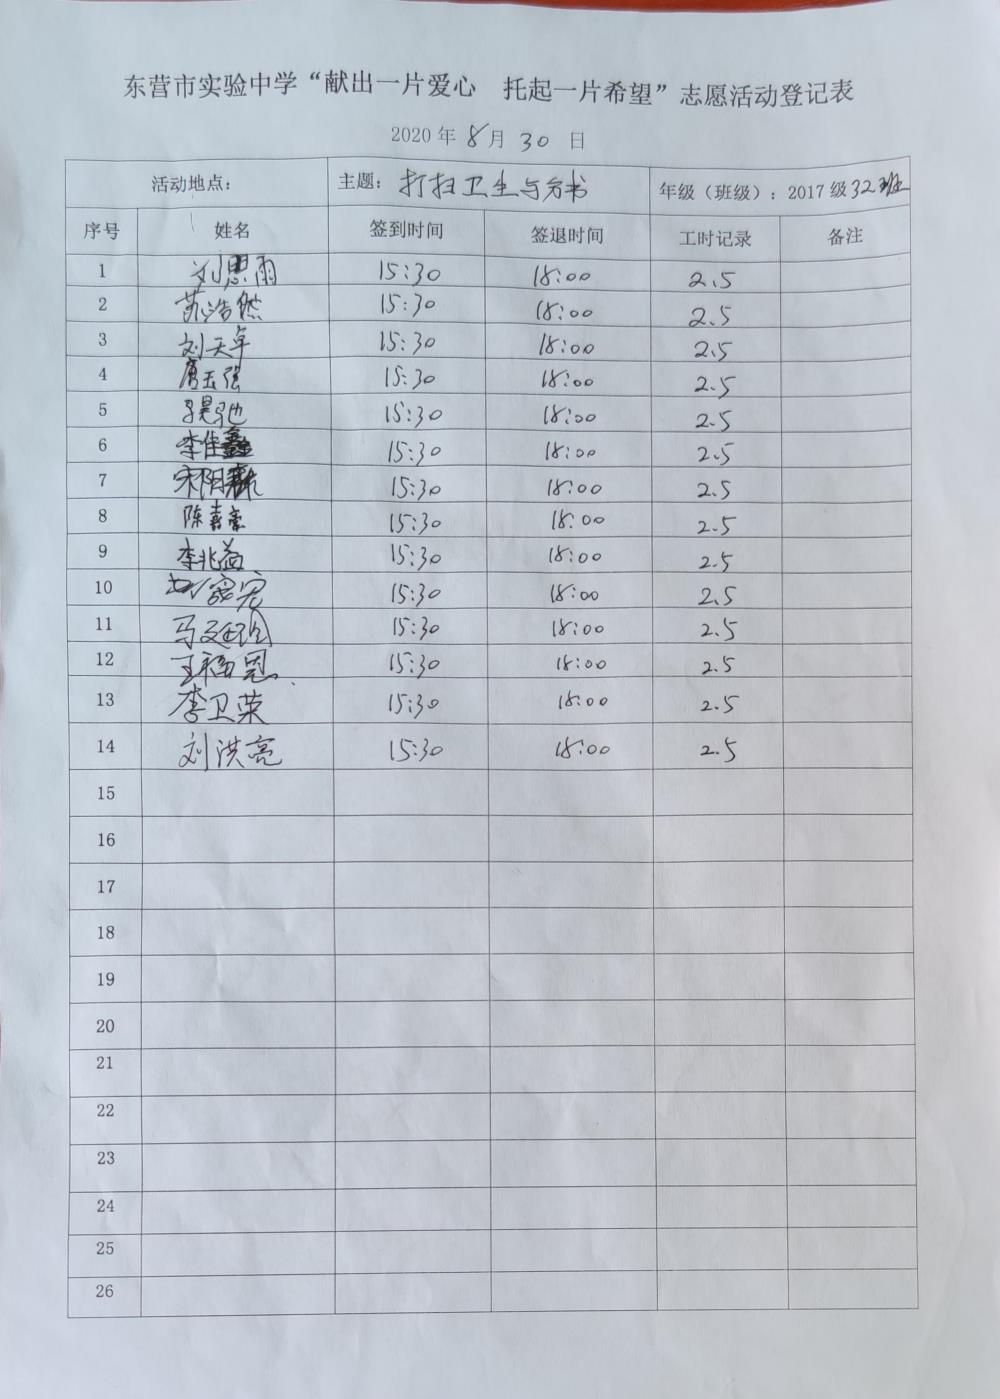 东营市实验中学“献出一片爱心 托起一片希望”志愿活动登记表
2020 年 8 月 30 日
活动地点： 主题：打扫卫生与分书 年级（班级）：2017 级 32班
序号 姓名 签到时间 签退时间 工时记录 备注
1 刘思雨 15:30 18:00 2.5
2 苏浩然 15:30 18:00 2.5
3 刘天卓 15:30 18:00 2.5
4 唐玉强 15:30 18:00 2.5
5 昊驰 15:30 18:00 2.5
6 李佳鑫 15:30 18:00 2.5
7 宋阳 15:30 18:00 2.5
8 陈嘉豪 15:30 18:00 2.5
9 李兆益 15:30 18:00 2.5
10 15:30 18:00 2.5
11 马廷 15:30 18:00 2.5
12 王福恩 15:30 18:00 2.5
13 李卫荣 15:30 18:00 2.5
14 刘洪亮 15:30 18:00 2.5
15
16
17
18
19
20
21
22
23
24
25
26